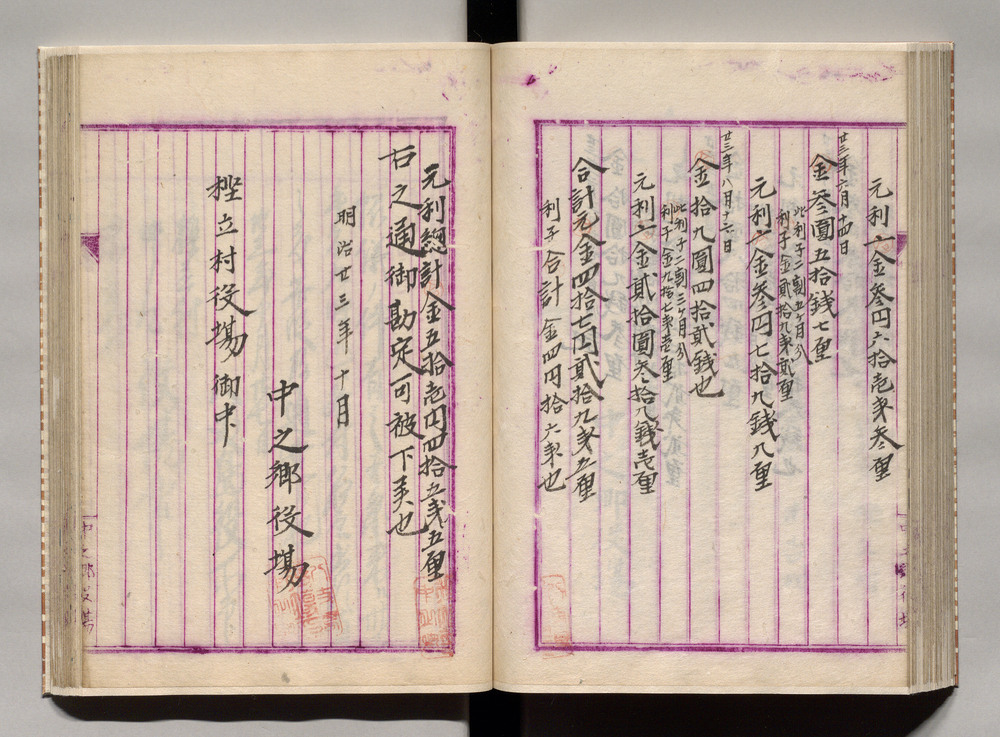 元利〆金叄円六拾壱戋叄厘
廿三年六月十四日
金叄圓五拾銭七厘
此利子二割五ヶ月分
利子金貳拾九戋貳厘
元利〆金叄円七拾九銭九厘
廿三年八月十六日
金拾九圓四拾貳銭也
此利子二割三ヶ月分
利子金九拾七戋壱厘
元利〆金貳拾圓叄拾九銭壱厘
合計元金四拾七円貳拾九戋五厘
利子合計金四円拾六戋也
元利総計金五拾壱円四拾五戋五厘
右之通御勘定可被下候也
明治廿三年十月
中之郷役場
樫立村役場御中
中之郷役場